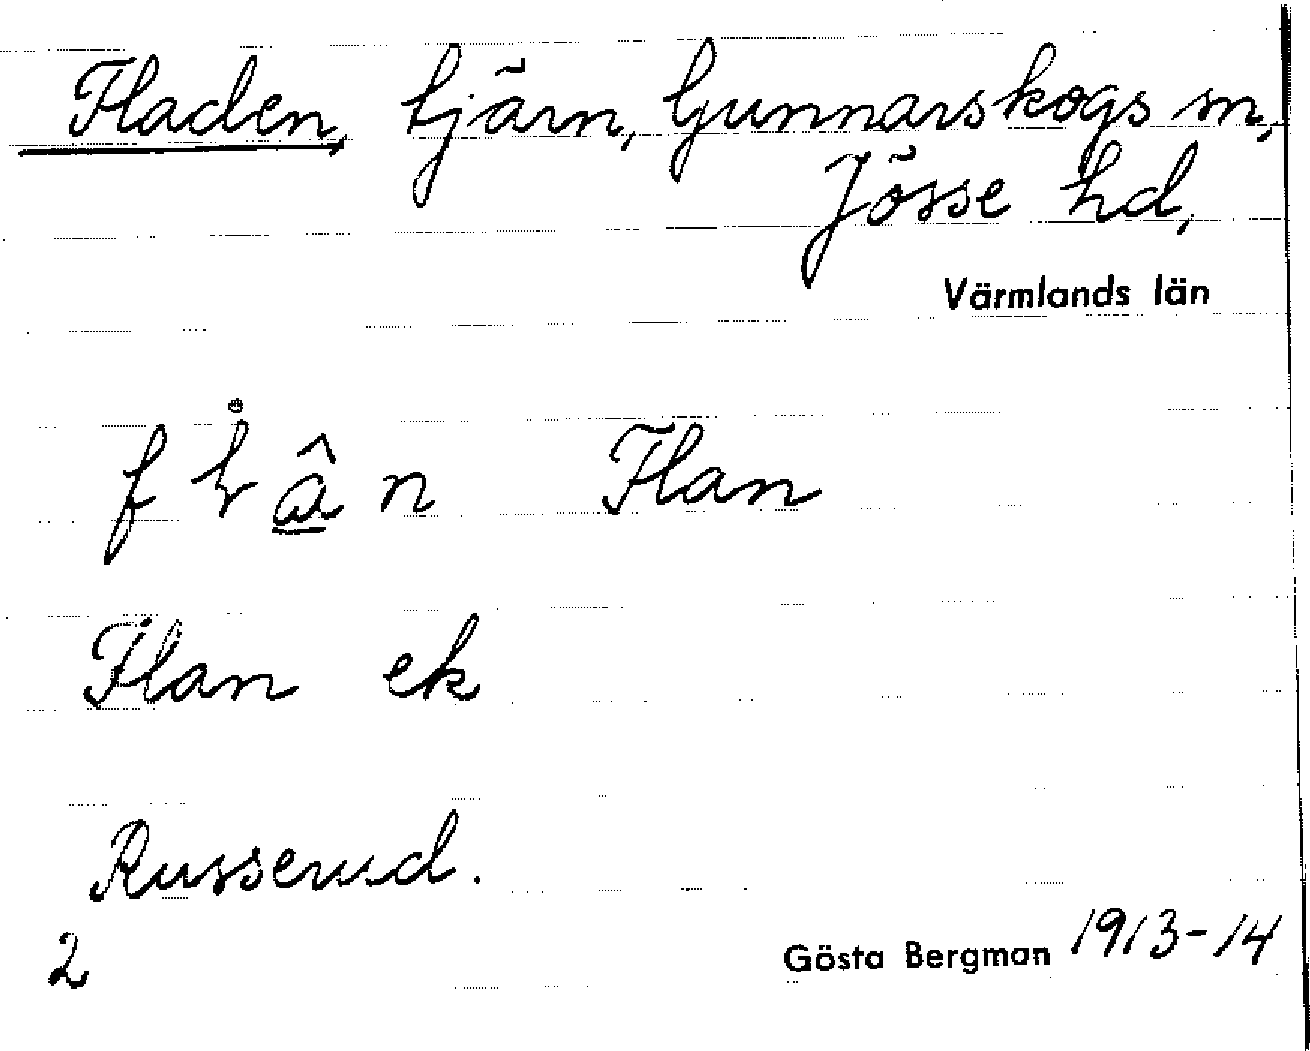 Fladen, tjärn, Gunnarskogs sn,
Jösse hd,
Värmlands län
Flan
Flan ek
Russerud.
2
Gösta Bergman 1913-14